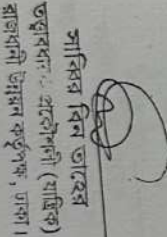 সাব্বির বিন তাহের
তত্ত্বাবধায়ক প্রকৌশলী (যান্ত্রিক)
রাজধানী উন্নয়ন কর্তৃপক্ষ, ঢাকা।